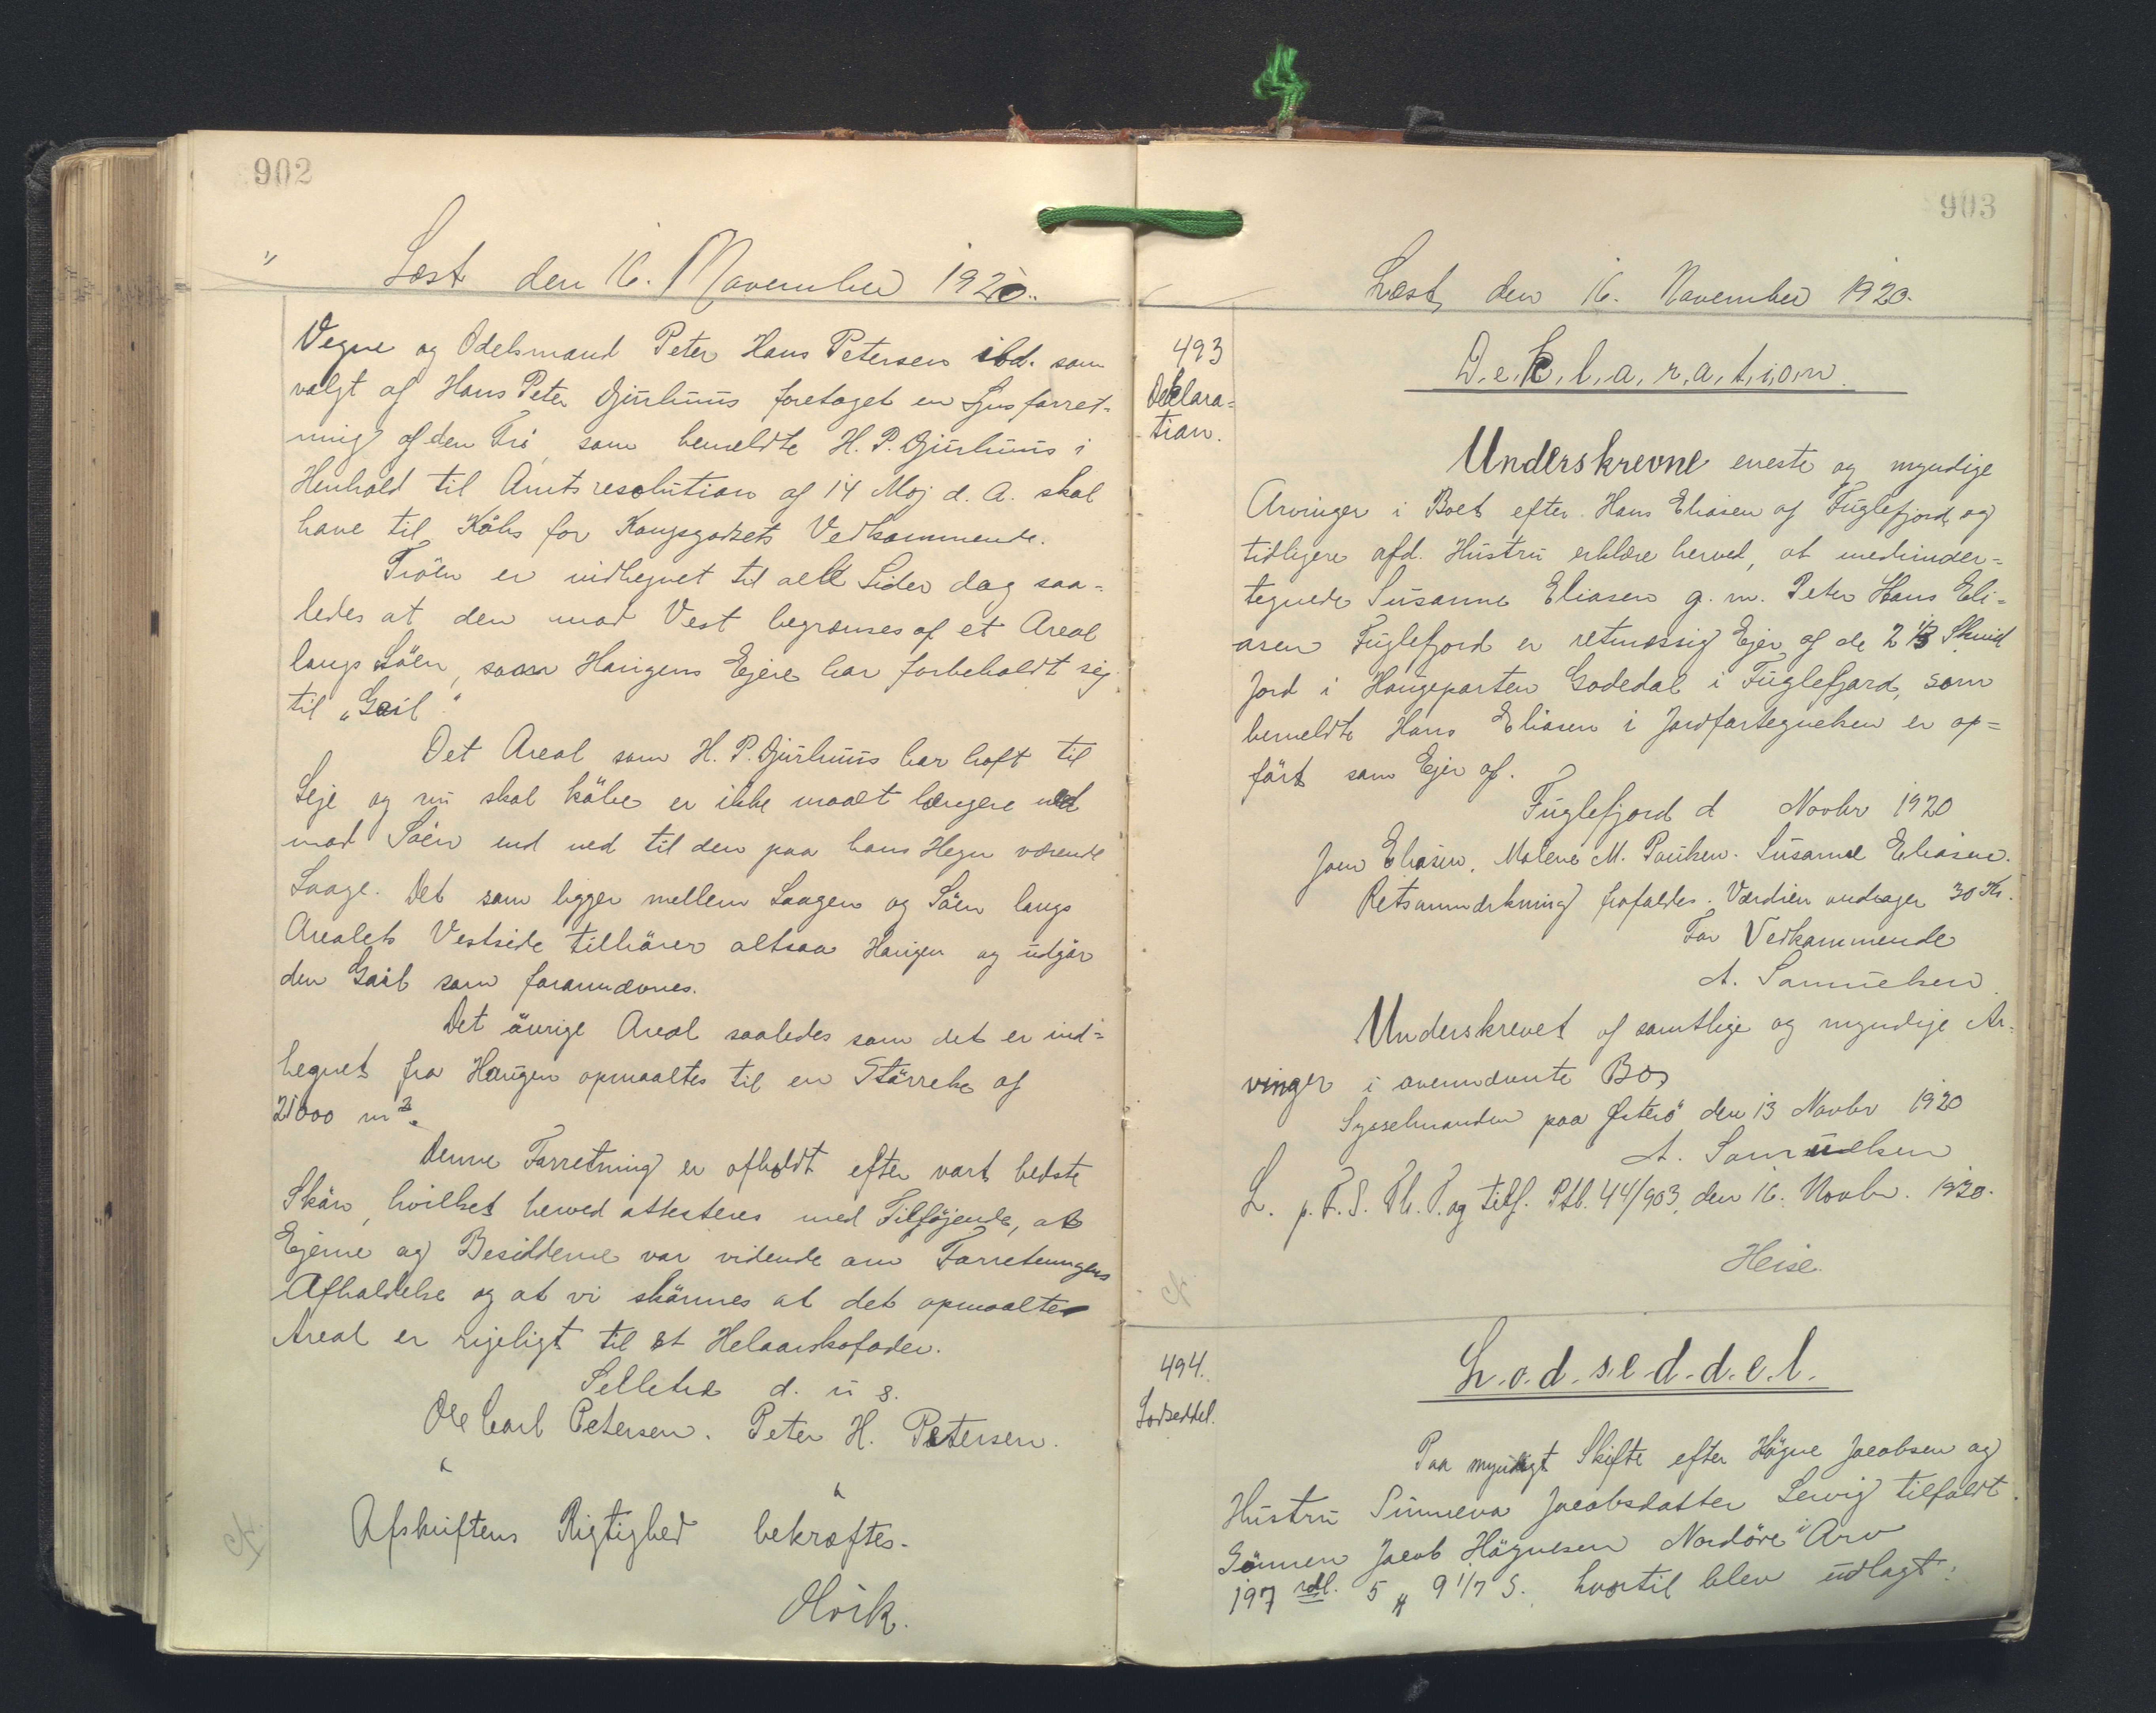 902
Læst den 16. November 1920.
Vegne og Odelsmand Peter Hans Petersen ibd. som
valgt af Hans Peter Djurhuus foretaget en Synsforret-
ning af den Trö, som bemeldte H. P. Djurhuus i
Henhold til Amtsresolution af 14 Maj d. A. skal
have til Köbs for Kongsgodsets Vedkommende.
Tröen er indhegnet til alle Sider dog saa-
ledes at den mod Vest begrænses af et Areal
langs Söen, som Haugens Ejere har forbeholdt sig
til "Geil"
Det Areal som H. P. Djurhuus har haft til
Leje og nu skal köbe er ikke maalt længere ned
mod Söen end ned til den paa hans Hegn værende
Laage. Det som ligger mellem Laagen og Söen langs
Arealets Vestside tilhörer altsaa Haugen og udgör
den Geil som forannævnes.
Det övrige Areal saaledes som det er ind-
hegnet fra Haugen opmaaltes til en Störrelse af
21000 m2.
Denne Forretning er afholdt efter vort bedste
Skön, hvilket herved attesteres med Tilföjende, at
Ejerne og Besidderne var vidende om Forretningens
Afholdelse og at vi skönnes at det opmaalte
Areal er rigeligt til et Helaarskofoder.
Selletræ d. u s.
Ole Carl Petersen. Peter H. Petersen.
Afskriftens Rigtighed bekræftes.
903
Læst, den 16. November 1920.
493
Deklara-
tion.
D.e.k.l.a.r.a.t.i.o.n.
Underskrevne eneste og myndige
Arvinger i Boet efter Hans Eliasen af Fuglefjord og
tidligere afd. Hustru erklære herved, at medunder-
tegnede Susanne Eliasen g. m. Peter Hans Eli-
asen Fuglefjord er retmæssig Ejer af de 2 1/3 Skind
Jord i Haugeparten Godedal i Fuglefjord, som
bemeldte Hans Eliasen i Jordfortegnelsen er op-
fört som Ejer af.
Fuglefjord d Novbr 1920
Joen Eliasen. Malene M. Poulsen. Susanne Eliasen.
Retsanmærkning frafaldes. Værdien andrager 30 Kr.
For Vedkommende
A. Samuelsen
Underskrevet af samtlige og myndige Ar-
vinger i ovennævnte Bo,
Sysselmanden paa Österö den 13 Novbr 1920
A. Samuelsen
L. p. F. S. Th. T. og tilf. Ptb. 44/903, den 16. Novbr. 1920.
Heise.
494.
Lodseddel.
L.o.d.s.e.d.d.e.l.
Paa myndigt Skifte efter Högne Jacobsen og
Hustru Sunneva Jacobsdatter Lervig tilfaldt
Sönnen Jacob Högnesen Nordöre i Arv
197 rdl. 5 # 9 1/7 S. hvortil blev udlagt: